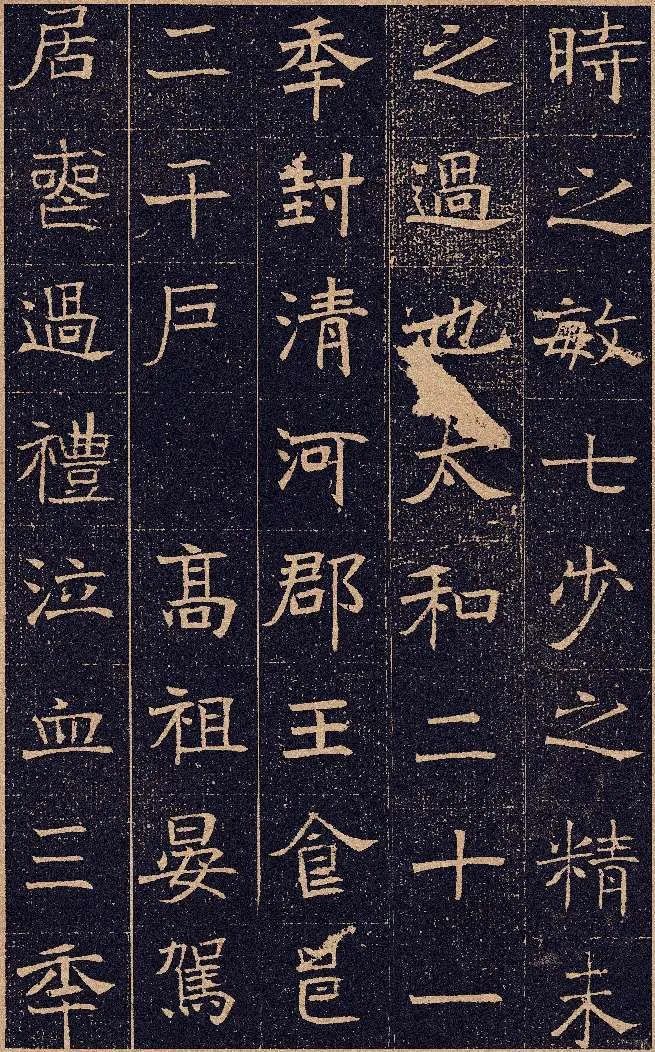 時之敏七步之精未
之過也太和二十一
年封清河郡王食邑
二千户高祖晏駕
居喪過禮泣血三年